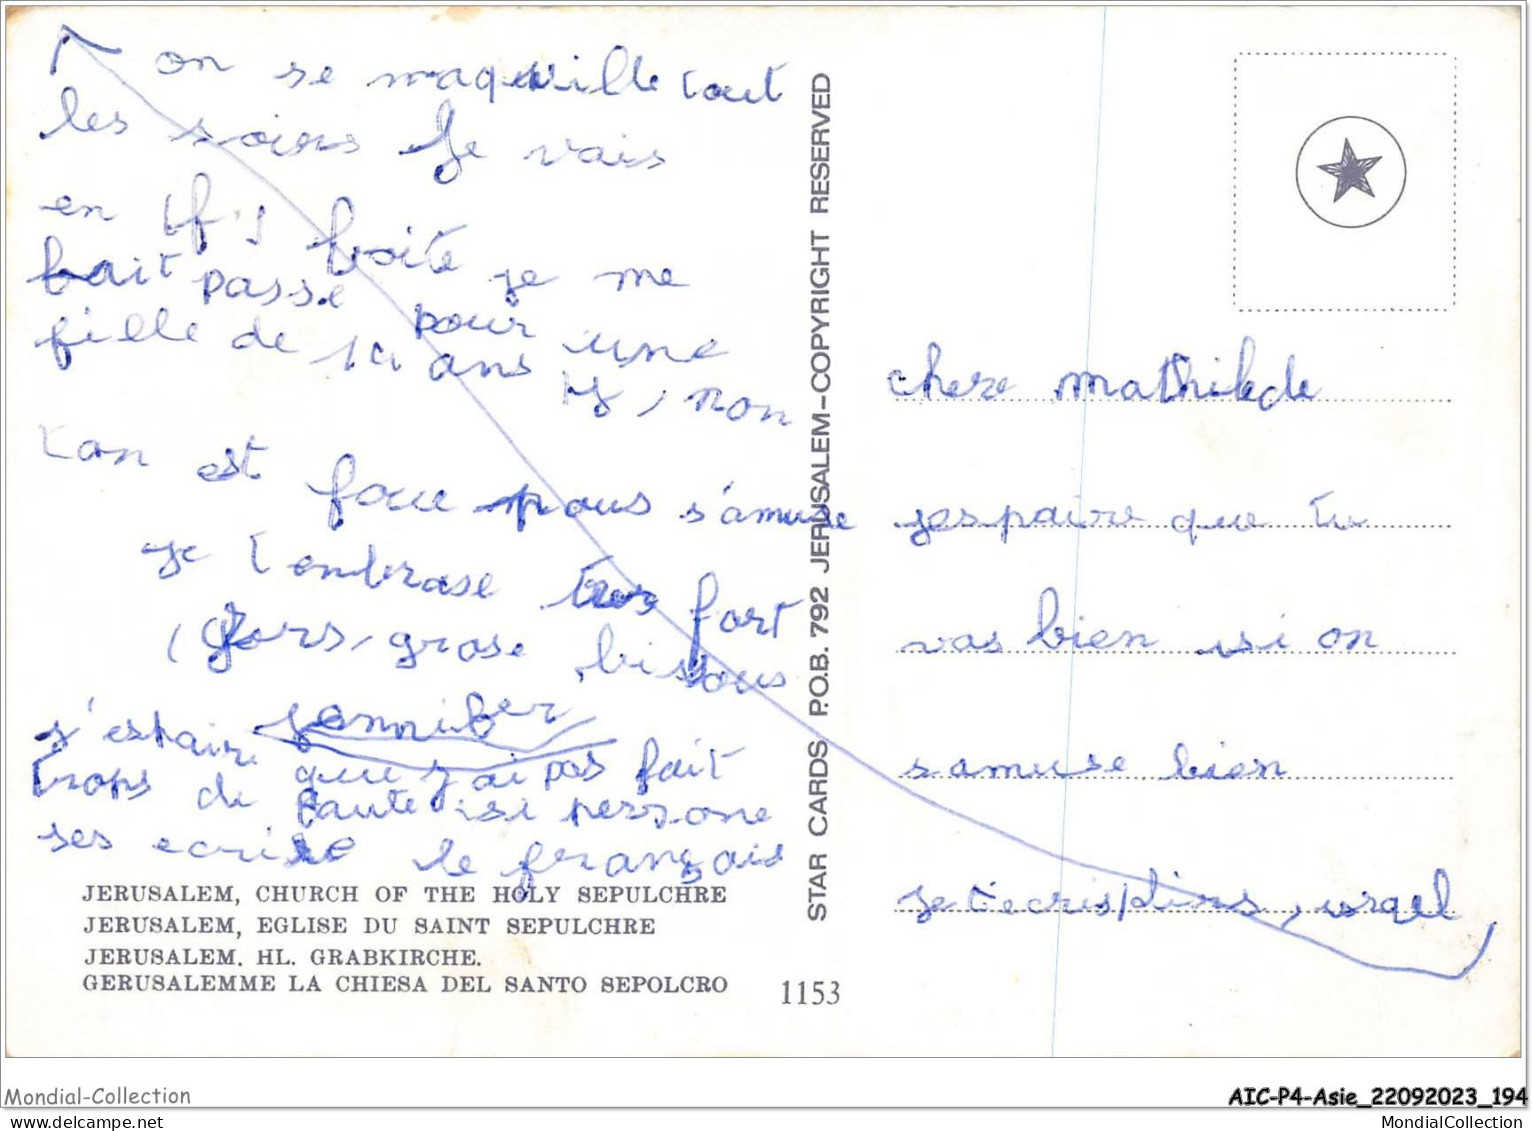 chere mathilde
jespaire que tu
vas bien isi on
s amuse bien
je t'ecris plins, israel
on se maquille tout
les soirs Je vais
en boite je me
fait passe pour une
fille de ans non
t on est foue nous s'amuse
je t embrase tres fort
gors, grose bisous
jennifer
j'espaire que j'ai pas fait
trops de faute isi persone
ses ecrire le français
JERUSALEM, CHURCH OF THE HOLY SEPULCHRE
JERUSALEM, EGLISE DU SAINT SEPULCHRE
JERUSALEM. HL. GRABKIRCHE.
GERUSALEMME LA CHIESA DEL SANTO SEPOLCRO
1153
STAR CARDS P.O.B. 792 JERUSALEM-COPYRIGHT RESERVED
Mondial-Collection
AIC-P4-Asie_22092023_194
https://www.delcampe.net
MondialCollection